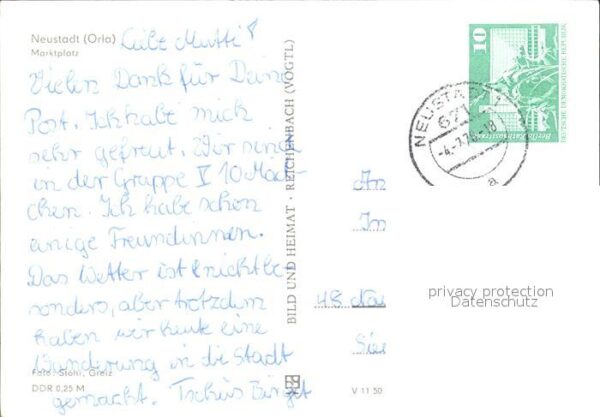 Neustadt (Orla)
Marktplatz
Liebe Mutti!
Vielen Dank für Deine
Post. Ich habe mich
sehr gefreut. Wir sind
in der Gruppe V 10 Mäd-
chen. Ich habe schon
einige Freundinnen.
Das Wetter ist nicht be
sonders, aber trotzdem
haben wir heute eine
Wanderung in die Stadt
gemacht. Tschüs Birgit
Foto: Stohl, Greiz
DDR 0,25 M
BILD UND HEIMAT · REICHENBACH (VOGTL)
V 11 50
10
DEUTSCHE DEMOKRATISCHE REPUBLIK
NEUSTA
An
48
privacy protection
Datenschutz